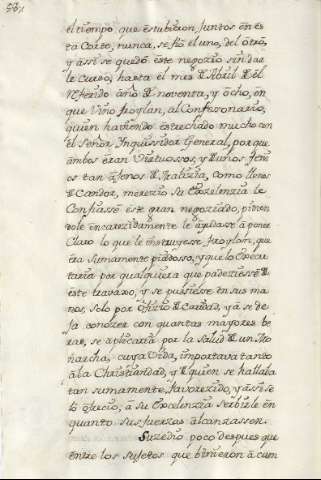 el tiempo, que estubieron Juntos en es
ta Corte, nunca, se fió el uno, del ótro,
y ássi se quedó éste negozio sin dar
le curso, hasta el mes de Abril del
referido ano de noventa, y ócho, en
que Vino froylan, al Confessonario,
quien haviendo estrechado mucho con
el Señor Ynquissidor General, porque
ámbos éran Virtuossos, y de unos Jenios
tan ájenos de malizia, como llenos
de Candor, merezio su Excelenzia le
Confiasse éste gran negoziado, pidien
dole encarezidamente le áyudase á poner
Claro lo que le instruyesse froylan, que
éra sumamente piadoso, y que lo Execu
taria por qualquiera que padeziesse de
éste travajo, y se pusiesse en sus ma
nos, solo por ófizio de Caridad, y á se de
ja conozer con quantas mayores be
ras, se áplicaria por la salud de un Mo
narcha, cuya Vida, importava tanto
á la Christiandad, y de quien se hallava
tan sumamente favorezido, y ássi se
lo ófrezio, á su Excelenzia serbirle en
quanto sus fuerzas álcanzassen.
Suzedio poco despues que
entre los sujetos que binieron á cum